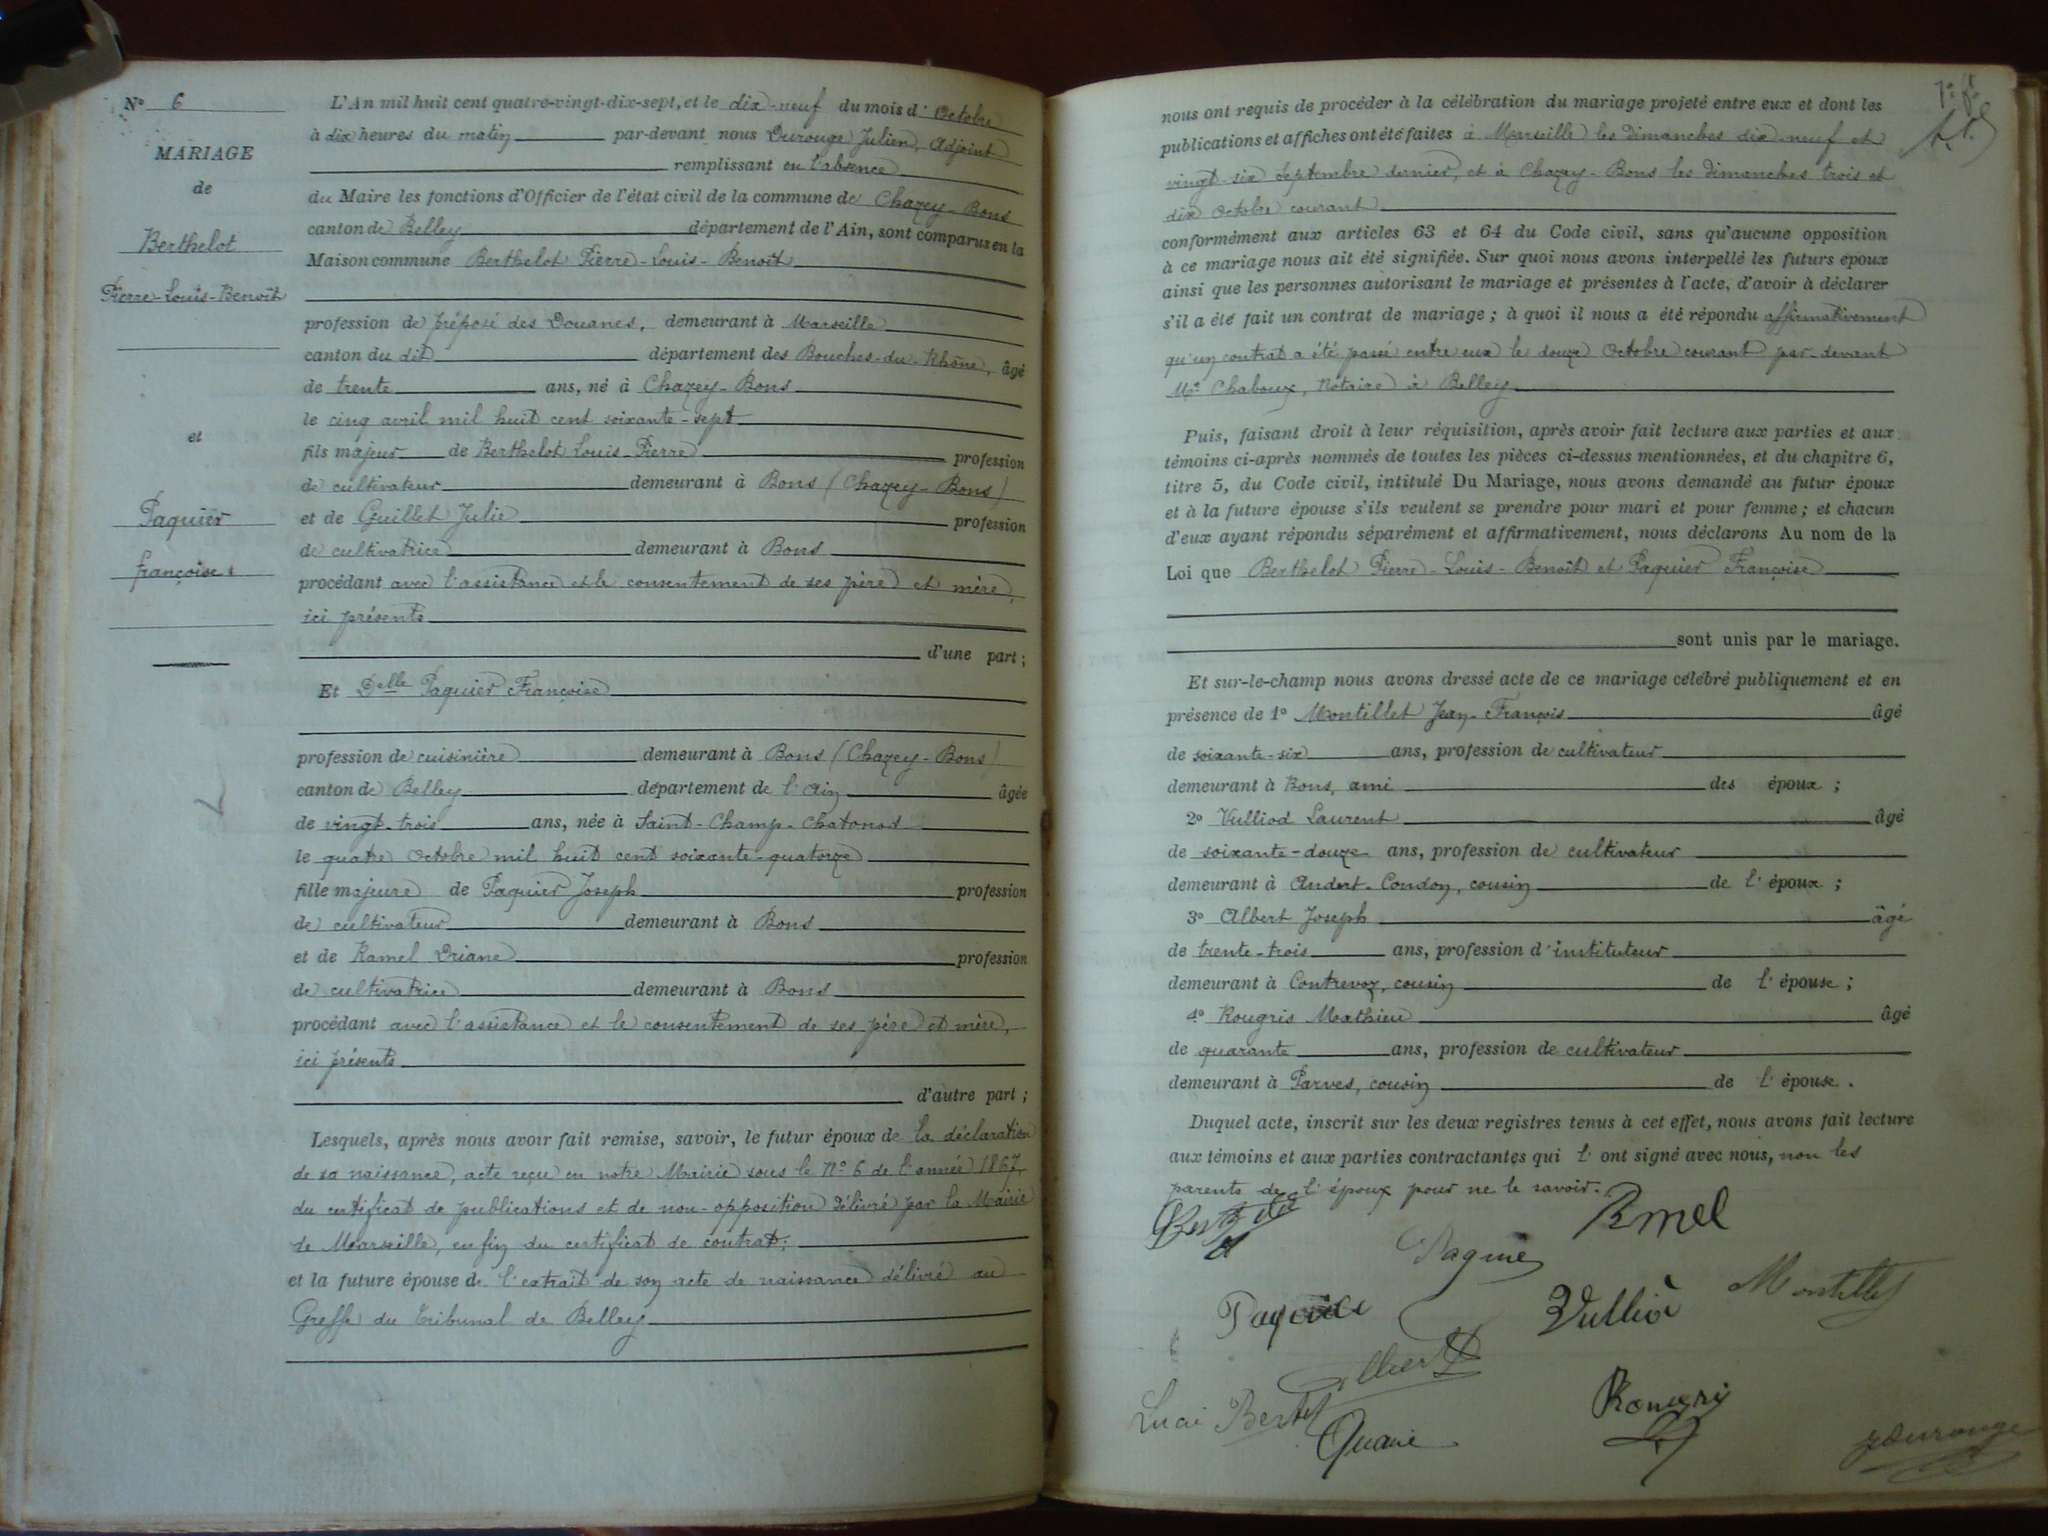 N° 6
MARIAGE
de
Berthelot
Pierre-Louis-Benoît
et
Paquier
françoise
L'An mil huit cent quatre-vingt-dix-sept, et le dix-neuf du mois d'Octobre
à dix heures du matin par-devant nous Durouge Julien, Adjoint
remplissant en l'absence
du Maire les fonctions d'Officier de l'état civil de la commune de Chazey-Bons
canton de Belley département de l'Ain, sont comparus en la
Maison commune Berthelot Pierre-Louis-Benoît
profession de préposé des Douanes, demeurant à Marseille
canton du dit département des Bouches-du-Rhône, âgé
de trente ans, né à Chazey-Bons
le cinq avril mil huit cent soixante-sept
fils majeur de Berthelot Louis-Pierre profession
de cultivateur demeurant à Bons (Chazey-Bons)
et de Guillet Julie profession
de cultivatrice demeurant à Bons
procédant avec l'assistance et le consentement de ses père et mère,
ici présents
d'une part ;
Et Delle Paquier Françoise
profession de cuisinière demeurant à Bons (Chazey-Bons)
canton de Belley département de l'Ain âgée
de vingt-trois ans, née à Saint-Champ-Chatonod
le quatre Octobre mil huit cent soixante-quatorze
fille majeure de Paquier Joseph profession
de cultivateur demeurant à Bons
et de Ramel Driane profession
de cultivatrice demeurant à Bons
procédant avec l'assistance et le consentement de ses père et mère,
ici présents
d'autre part ;
Lesquels, après nous avoir fait remise, savoir, le futur époux de la déclaration
de sa naissance, acte reçu en notre Mairie sous le N° 6 de l'année 1867,
du certificat de publications et de non-opposition délivré par la Mairie
de Marseille, enfin du certificat de contrat;
et la future épouse de l'extrait de son acte de naissance délivré au
Greffe du Tribunal de Belley
nous ont requis de procéder à la célébration du mariage projeté entre eux et dont les
publications et affiches ont été faites à Marseille les dimanches dix-neuf et
vingt-six Septembre dernier, et à Chazey-Bons les dimanches trois et
dix Octobre courant
conformément aux articles 63 et 64 du Code civil, sans qu'aucune opposition
à ce mariage nous ait été signifiée. Sur quoi nous avons interpellé les futurs époux
ainsi que les personnes autorisant le mariage et présentes à l'acte, d'avoir à déclarer
s'il a été fait un contrat de mariage ; à quoi il nous a été répondu affirmativement
qu'un contrat a été passé entre eux le douze Octobre courant par-devant
Me Chaboux, Notaire à Belley
Puis, faisant droit à leur réquisition, après avoir fait lecture aux parties et aux
témoins ci-après nommés de toutes les pièces ci-dessus mentionnées, et du chapitre 6,
titre 5, du Code civil, intitulé Du Mariage, nous avons demandé au futur époux
et à la future épouse s'ils veulent se prendre pour mari et pour femme ; et chacun
d'eux ayant répondu séparément et affirmativement, nous déclarons Au nom de la
Loi que Berthelot Pierre-Louis-Benoît et Paquier Françoise
sont unis par le mariage.
Et sur-le-champ nous avons dressé acte de ce mariage célébré publiquement et en
présence de 1° Montillet Jean-François âgé
de soixante-six ans, profession de cultivateur
demeurant à Bons, ami des époux ;
2° Vulliod Laurent âgé
de soixante-douze ans, profession de cultivateur
demeurant à Andert-Condon, cousin de l'époux ;
3° Albert Joseph âgé
de trente-trois ans, profession d'instituteur
demeurant à Contrevoz, cousin de l'épouse ;
4° Rougris Mathieu âgé
de quarante ans, profession de cultivateur
demeurant à Parves, cousin de l'épouse.
Duquel acte, inscrit sur les deux registres tenus à cet effet, nous avons fait lecture
aux témoins et aux parties contractantes qui l'ont signé avec nous, non les
parents de l'époux pour ne le savoir.
Rmel
Montillet
Vulliod
JDurouge